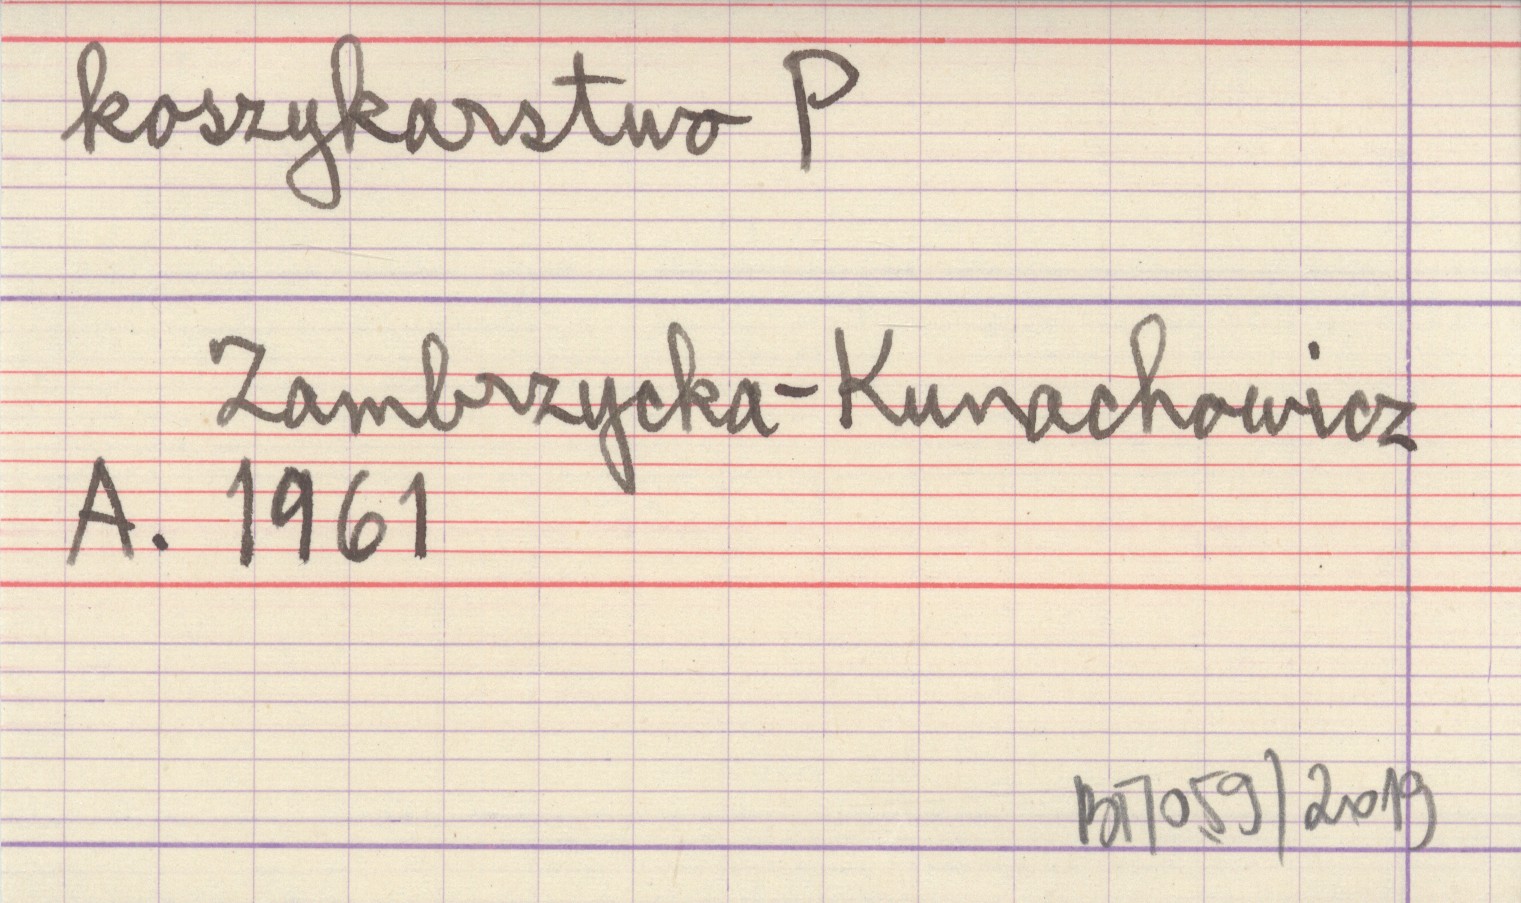 koszykarstwo P
Zambrzycka-Kunachowicz
A. 1961